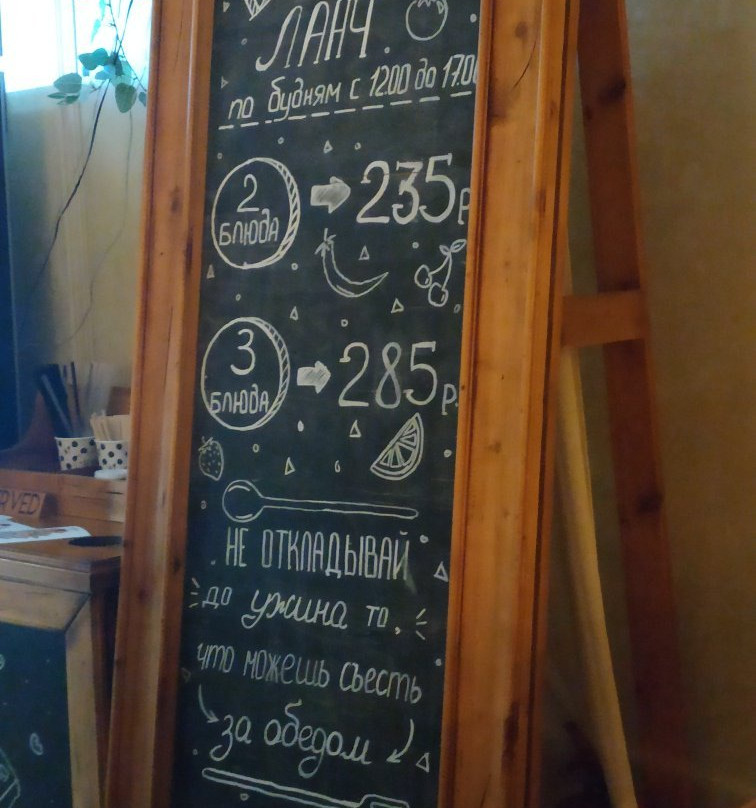 ЛАНЧ.
по будням с 12.00 до 17.00
2
БЛЮДА
235р
3
БЛЮДА
285р.
RVED
НЕ ОТКЛАДЫВАЙ
до ужина то,
что можешь съесть
за обедом